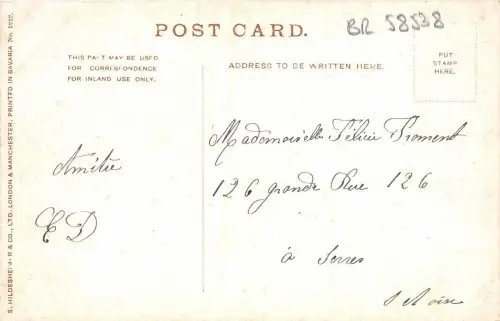 POST CARD.
BR 58538
THIS PART MAY BE USED
FOR CORRESPONDENCE
FOR INLAND USE ONLY.
ADDRESS TO BE WRITTEN HERE.
PUT
STAMP
HERE.
Amitié
E D
Mademoiselle Félicie Froment
126 grande Rue 126
à Sevres
S. HILDESHEIMER & CO., LTD. LONDON & MANCHESTER. PRINTED IN BAVARIA No.